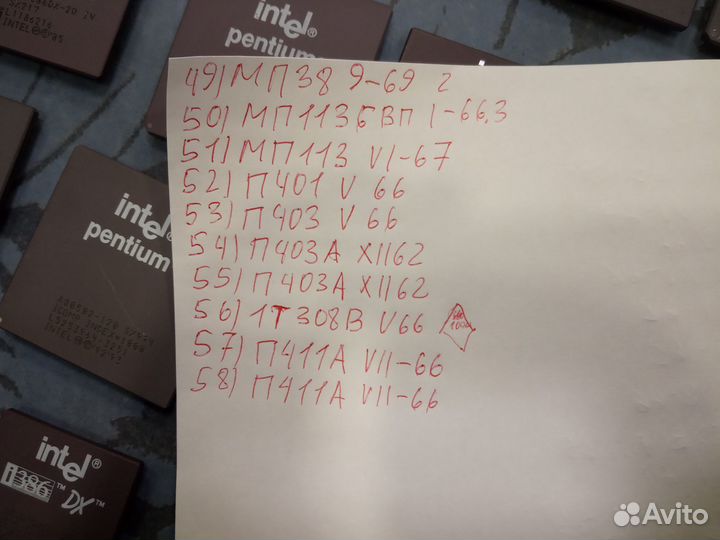 intel®
pentium®
49) МП38 9-69 г
50) МП113Б ВП I-66.3
51) МП113 VI-67
52) П401 V 66
53) П403 V 66
54) П403А XII62
55) П403А XII62
56) 1Т308В V66
57) П411А VII-66
58) П411А VII-66
intel®
pentium®
INTEL
intel®
i386™ DX™
Avito